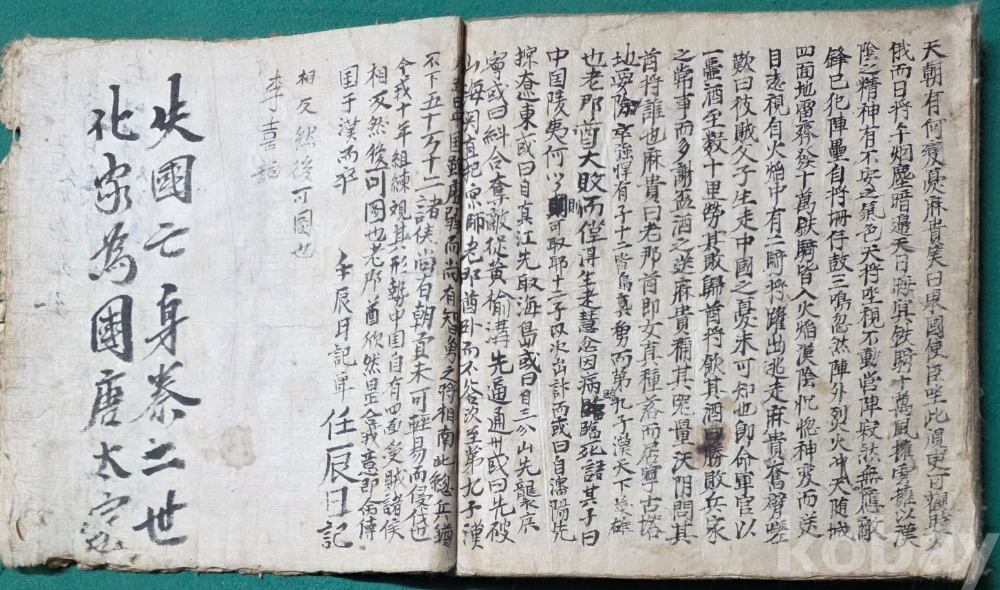 天朝有何憂憂麻貴笑曰東國使臣坐此須臾可觀
俄而日將午烟塵暗邊天日晦冥鉄騎十萬風擁雲推以漢
陰之精神有不安之氣色天將坐視不動營陣寂然無應敵
鋒已犯陣壘自將冊仔鼓三鳴忽然陣外烈火冲天随城
四面地雷齊發十萬鉄騎皆入火焰漢陰怳惚神変而送
目志視自火焰中有二騎將躍出逃走麻貴奮臂嗟
歎曰彼賊父子生走中國之憂未可知也即命軍官以
一壘酒至数十里勞其敗歸酋將飲其酒曰勝敗兵家
之常事而多謝盃酒之送麻貴稱其兇量漢阴問其
酋將誰也麻貴曰老那酋即女真種落而居寧古塔
地勢險卒強悍有子十二皆鳥真勇而第九子漢天下英雄
也老那酋大敗而僅得生走慧忿因病臨死語其子曰
中国陵夷何以則可取耶十二子次次出計而或曰自瀋陽先
掠遼東或曰自真江先取海島或曰自三山先襲
寧或曰糾合奪敵從黃榆溝先通通州或曰先破
山海関直犯京師老那酋卧而不答次至第九子漢
曰中国雖虛弱而尚有智勇之將相南北總兵猶
不下五十万十二諸侯尚有朝貢未可輕易而侵伐
令我十年組練視其形勢中国自有四面受賊諸侯
相反然後可圖也老那酋欣然曰是合我意即令傳
国于漢而卒 壬辰日記卑 任辰日記
相反然後可圖也
李喜記
失國亡身秦二世
化家為國唐太宗
kobay